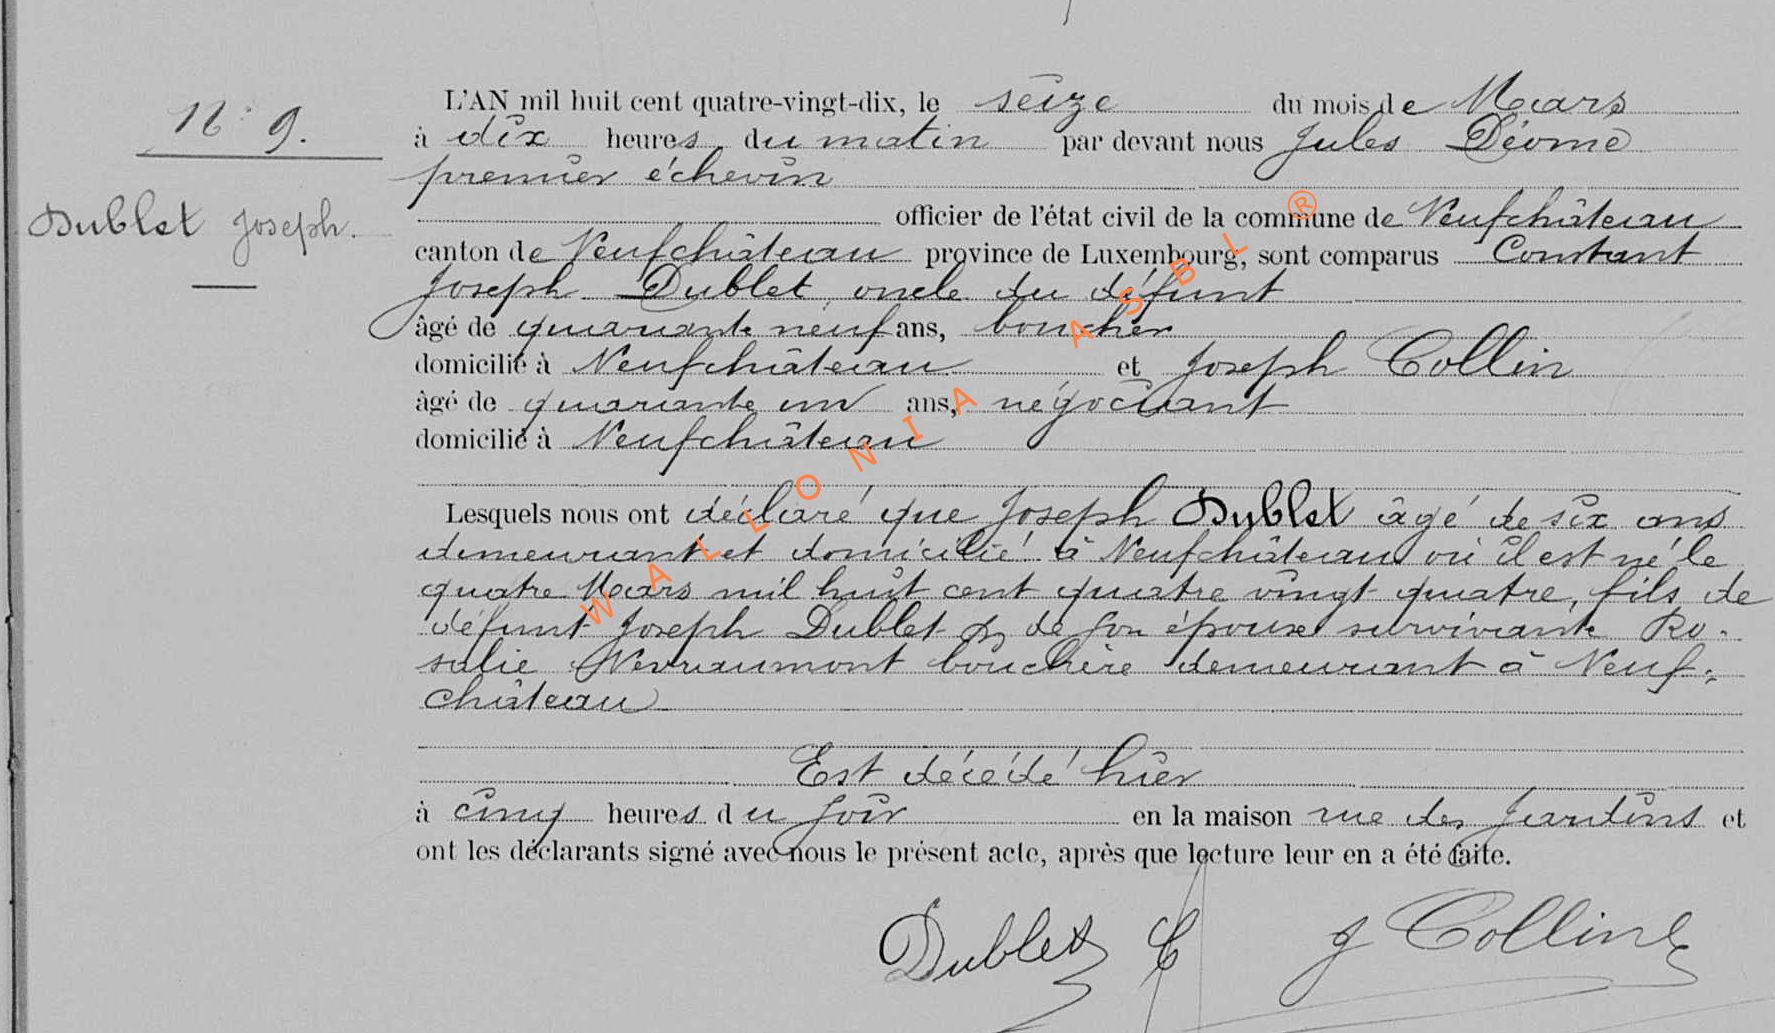 N° 9.
Dublet Joseph.
L'AN mil huit cent quatre-vingt-dix, le seize du mois de Mars
à dix heures du matin par devant nous Jules Déome
premier échevin
officier de l'état civil de la commune de Neufchâteau
canton de Neufchâteau province de Luxembourg, sont comparus Constant
Joseph Dublet, oncle du défunt
âgé de quarante neuf ans, boucher
domicilié à Neufchâteau et Joseph Collin
âgé de quarante un ans, négociant
domicilié à Neufchâteau
Lesquels nous ont déclaré que Joseph Dublet âgé de six ans
demeurant et domicilié à Neufchâteau où il est né le
quatre Mars mil huit cent quatre vingt quatre, fils de
défunt Joseph Dublet & de son épouse survivante Ro-
salie Nevraumont bouchère demeurant à Neuf-
château
Est décédé hier
à cinq heures du soir en la maison rue des Jardins et
ont les déclarants signé avec nous le présent acte, après que lecture leur en a été faite.
Dublet C J Collin
WALLONIA ASBL ®